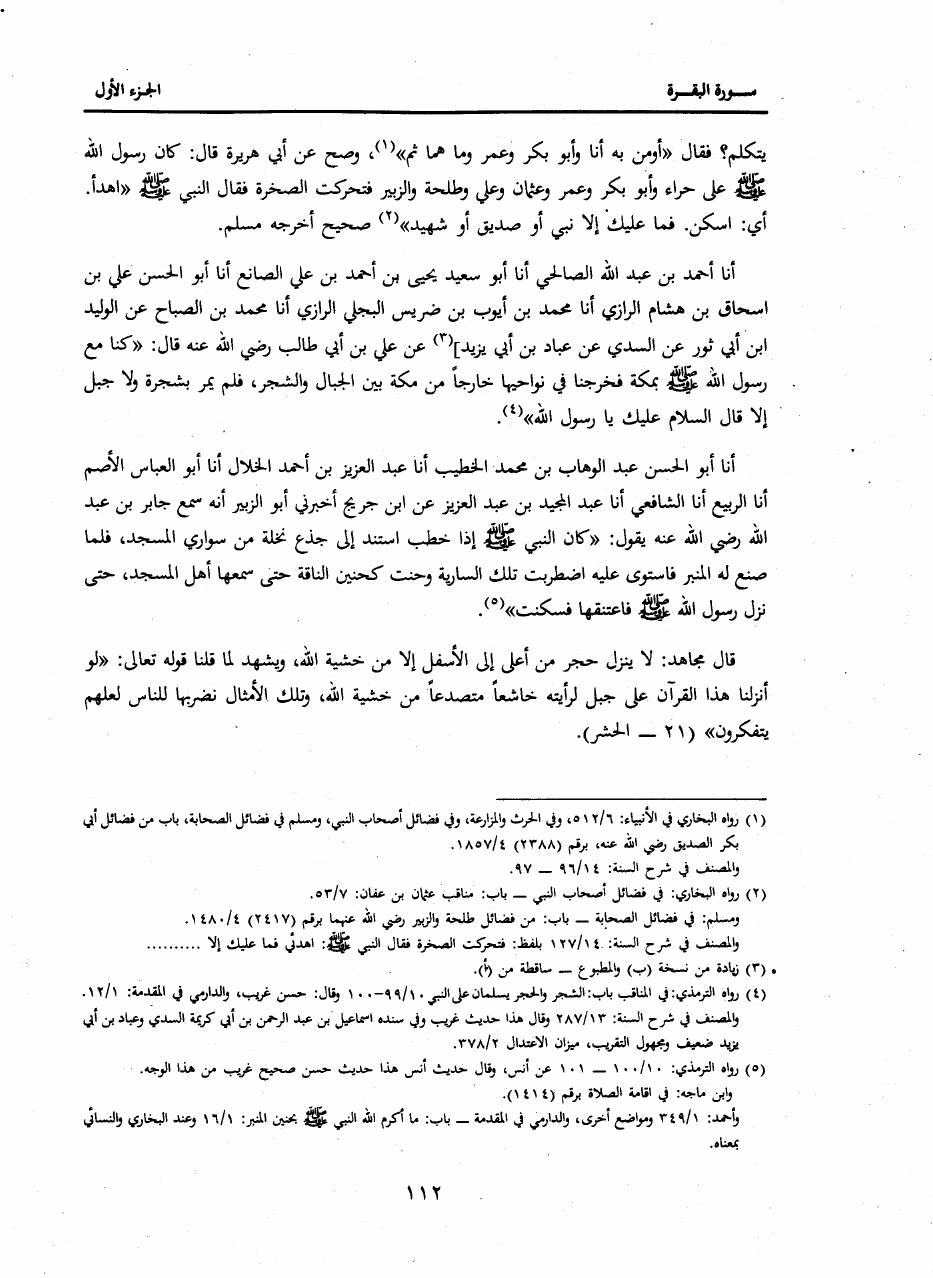 سـورة البقـرة
الجزء الأول
يتكلم؟ فقال «أومن به أنا وأبو بكر وعمر وما هما ثم»(١)، وصح عن أبي هريرة قال: كان رسول الله
ﷺ على حراء وأبو بكر وعمر وعثمان وعلي وطلحة والزبير فتحركت الصخرة فقال النبي ﷺ «اهدأ.
أي: اسكن. فما عليك إلا نبي أو صديق أو شهيد»(٢) صحيح أخرجه مسلم.
أنا أحمد بن عبد الله الصالحي أنا أبو سعيد يحيى بن أحمد بن علي الصانع أنا أبو الحسن علي بن
اسحاق بن هشام الرازي أنا محمد بن أيوب بن ضريس البجلي الرازي أنا محمد بن الصباح عن الوليد
ابن أبي ثور عن السدي عن عباد بن أبي يزيد](٣) عن علي بن أبي طالب رضي الله عنه قال: «كنا مع
رسول الله ﷺ بمكة فخرجنا في نواحيها خارجاً من مكة بين الجبال والشجر، فلم يمر بشجرة ولا جبل
إلا قال السلام عليك يا رسول الله»(٤).
أنا أبو الحسن عبد الوهاب بن محمد الخطيب أنا عبد العزيز بن أحمد الخلال أنا أبو العباس الأصم
أنا الربيع أنا الشافعي أنا عبد المجيد بن عبد العزيز عن ابن جريج أخبرني أبو الزبير أنه سمع جابر بن عبد
الله رضي الله عنه يقول: «كان النبي ﷺ إذا خطب استند إلى جذع نخلة من سواري المسجد، فلما
صنع له المنبر فاستوى عليه اضطربت تلك السارية وحنت كحنين الناقة حتى سمعها أهل المسجد، حتى
نزل رسول الله ﷺ فاعتنقها فسكنت»(٥).
قال مجاهد: لا ينزل حجر من أعلى إلى الأسفل إلا من خشية الله، ويشهد لما قلنا قوله تعالى: «لو
أنزلنا هذا القرآن على جبل لرأيته خاشعاً متصدعاً من خشية الله، وتلك الأمثال نضربها للناس لعلهم
يتفكرون» (٢١ ــ الحشر).
(١) رواه البخاري في الأنبياء: ٥١٢/٦، وفي الحرث والمزارعة، وفي فضائل أصحاب النبي، ومسلم في فضائل الصحابة، باب من فضائل أبي
بكر الصديق رضي الله عنه، برقم (٢٣٨٨) ١٨٥٧/٤.
والمصنف في شرح السنة: ٩٦/١٤ ــ ٩٧.
(٢) رواه البخاري: في فضائل أصحاب النبي ــ باب: مناقب عثمان بن عفان: ٥٣/٧.
ومسلم: في فضائل الصحابة ــ باب: من فضائل طلحة والزبير رضي الله عنهما برقم (٢٤١٧) ١٤٨٠/٤.
والمصنف في شرح السنة: ١٢٧/١٤ بلفظ: فتحركت الصخرة فقال النبي ﷺ: اهدئي فما عليك إلا ..........
(٣) زيادة من نسخة (ب) والمطبوع ــ ساقطة من (أ).
(٤) رواه الترمذي: في المناقب باب: الشجر والحجر يسلمان على النبي ٩٩/١٠-١٠٠ وقال: حسن غريب، والدارمي في المقدمة: ١٢/١.
والمصنف في شرح السنة: ٢٨٧/١٣ وقال هذا حديث غريب وفي سنده اسماعيل بن عبد الرحمن بن أبي كريمة السدي وعباد بن أبي
يزيد ضعيف ومجهول التقريب، ميزان الاعتدال ٣٧٨/٢.
(٥) رواه الترمذي: ١٠٠/١٠ ــ ١٠١ عن أنس، وقال حديث أنس هذا حديث حسن صحيح غريب من هذا الوجه.
وابن ماجه: في اقامة الصلاة برقم (١٤١٤).
وأحمد: ٣٤٩/١ ومواضع أخرى، والدارمي في المقدمة ــ باب: ما أكرم الله النبي ﷺ بحنين المنبر: ١٦/١ وعند البخاري والنسائي
بمعناه.
١١٢